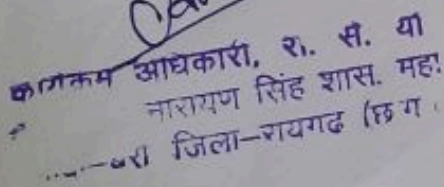 कार्यक्रम अधिकारी, रा. से. यो
नारायण सिंह शास. महा
जिला-रायगढ (छ ग .